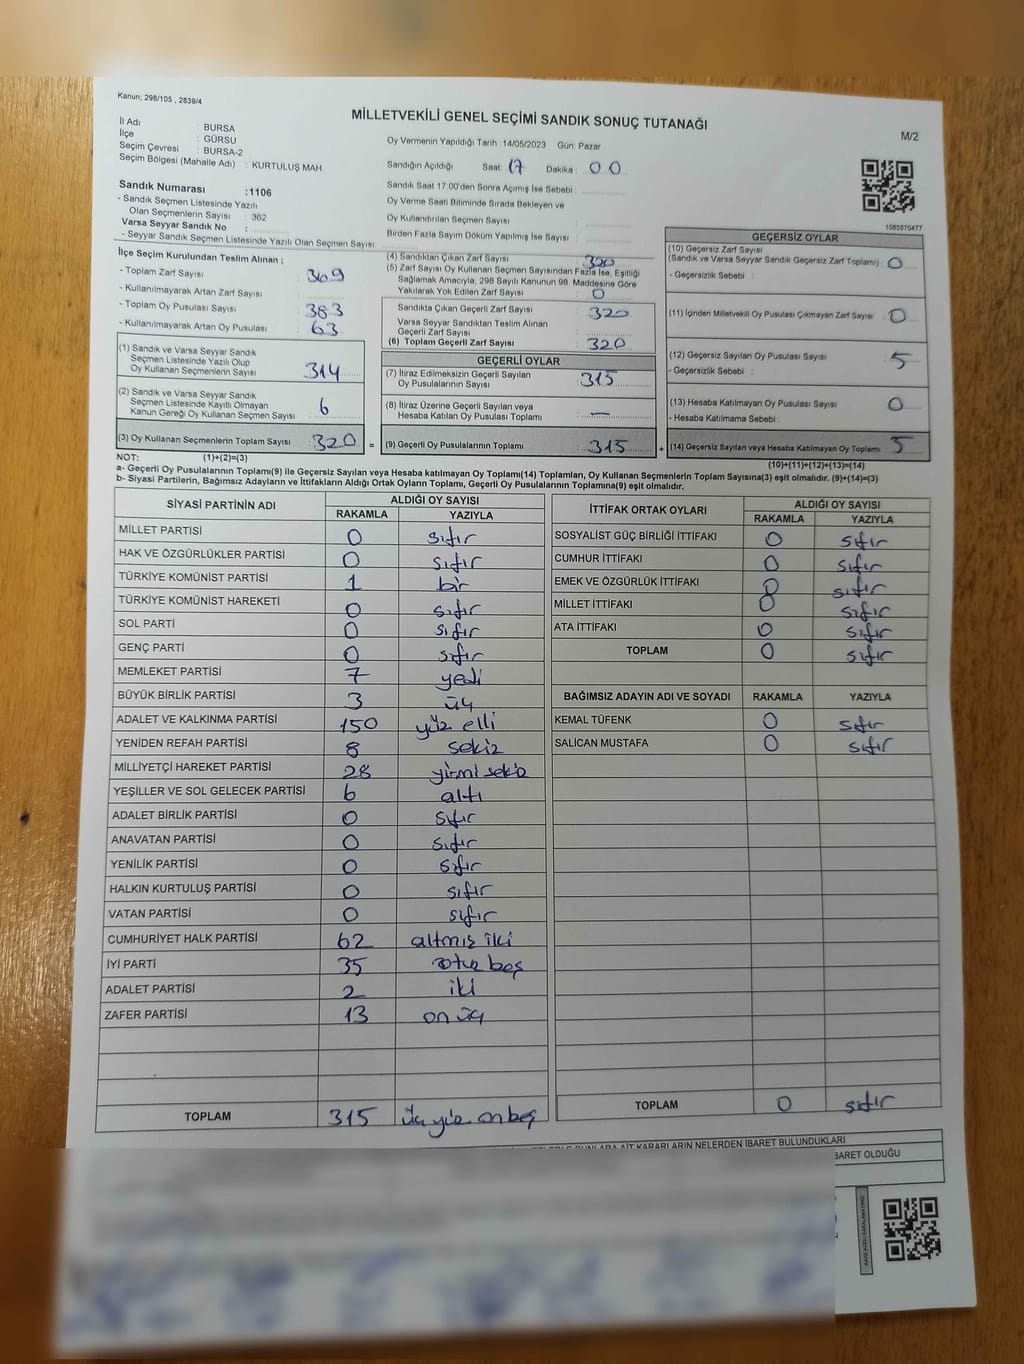 Kanun; 298/105 , 2839/4
MİLLETVEKİLİ GENEL SEÇİMİ SANDIK SONUÇ TUTANAĞI
M/2
İl Adı : BURSA
İlçe : GÜRSU
Seçim Çevresi : BURSA-2
Seçim Bölgesi (Mahalle Adı) : KURTULUŞ MAH
Oy Vermenin Yapıldığı Tarih : 14/05/2023 Gün: Pazar
Sandığın Açıldığı Saat 17 Dakika : 00
Sandık Saat 17.00'den Sonra Açımış İse Sebebi :
Oy Verme Saati Bitiminde Sırada Bekleyen ve
Oy Kullandırılan Seçmen Sayısı :
Birden Fazla Sayım Döküm Yapılmış İse Sayısı :
Sandık Numarası :1106
- Sandık Seçmen Listesinde Yazılı
Olan Seçmenlerin Sayısı : 362
Varsa Seyyar Sandık No :
- Seyyar Sandık Seçmen Listesinde Yazılı Olan Seçmen Sayısı:
1083570477
İlçe Seçim Kurulundan Teslim Alınan ;
- Toplam Zarf Sayısı : 369
- Kullanılmayarak Artan Zarf Sayısı :
- Toplam Oy Pusulası Sayısı : 383
- Kullanılmayarak Artan Oy Pusulası : 63
(1) Sandık ve Varsa Seyyar Sandık
Seçmen Listesinde Yazılı Olup
Oy Kullanan Seçmenlerin Sayısı : 314
(2) Sandık ve Varsa Seyyar Sandık
Seçmen Listesinde Kayıtlı Olmayan
Kanun Gereği Oy Kullanan Seçmen Sayısı : 6
(3) Oy Kullanan Seçmenlerin Toplam Sayısı : 320
(4) Sandıktan Çıkan Zarf Sayısı : 320
(5) Zarf Sayısı Oy Kullanan Seçmen Sayısından Fazla İse, Eşitliği
Sağlamak Amacıyla, 298 Sayılı Kanunun 98. Maddesine Göre
Yakılarak Yok Edilen Zarf Sayısı : 0
Sandıkta Çıkan Geçerli Zarf Sayısı : 320
Varsa Seyyar Sandıktan Teslim Alınan
Geçerli Zarf Sayısı :
(6) Toplam Geçerli Zarf Sayısı : 320
GEÇERLİ OYLAR
(7) İtiraz Edilmeksizin Geçerli Sayılan
Oy Pusulalarının Sayısı : 315
(8) İtiraz Üzerine Geçerli Sayılan veya
Hesaba Katılan Oy Pusulası Toplamı : —
= (9) Geçerli Oy Pusulalarının Toplamı : 315
GEÇERSİZ OYLAR
(10) Geçersiz Zarf Sayısı
(Sandık ve Varsa Seyyar Sandık Geçersiz Zarf Toplamı) : 0
- Geçersizlik Sebebi :
(11) İçinden Milletvekili Oy Pusulası Çıkmayan Zarf Sayısı : 0
(12) Geçersiz Sayılan Oy Pusulası Sayısı : 5
- Geçersizlik Sebebi :
(13) Hesaba Katılmayan Oy Pusulası Sayısı : 0
- Hesaba Katılmama Sebebi :
+ (14) Geçersiz Sayılan veya Hesaba Katılmayan Oy Toplamı : 5
NOT: (1)+(2)=(3)
(10)+(11)+(12)+(13)=(14)
a- Geçerli Oy Pusulalarının Toplamı(9) ile Geçersiz Sayılan veya Hesaba katılmayan Oy Toplamı(14) Toplamları, Oy Kullanan Seçmenlerin Toplam Sayısına(3) eşit olmalıdır. (9)+(14)=(3)
b- Siyasi Partilerin, Bağımsız Adayların ve İttifakların Aldığı Ortak Oyların Toplamı, Geçerli Oy Pusulalarının Toplamına(9) eşit olmalıdır.
SİYASİ PARTİNİN ADI ALDIĞI OY SAYISI
RAKAMLA YAZIYLA
MİLLET PARTİSİ 0 sıfır
HAK VE ÖZGÜRLÜKLER PARTİSİ 0 sıfır
TÜRKİYE KOMÜNİST PARTİSİ 1 bir
TÜRKİYE KOMÜNİST HAREKETİ 0 sıfır
SOL PARTİ 0 sıfır
GENÇ PARTİ 0 sıfır
MEMLEKET PARTİSİ 7 yedi
BÜYÜK BİRLİK PARTİSİ 3 üç
ADALET VE KALKINMA PARTİSİ 150 yüz elli
YENİDEN REFAH PARTİSİ 8 sekiz
MİLLİYETÇİ HAREKET PARTİSİ 28 yirmi sekiz
YEŞİLLER VE SOL GELECEK PARTİSİ 6 altı
ADALET BİRLİK PARTİSİ 0 sıfır
ANAVATAN PARTİSİ 0 sıfır
YENİLİK PARTİSİ 0 sıfır
HALKIN KURTULUŞ PARTİSİ 0 sıfır
VATAN PARTİSİ 0 sıfır
CUMHURİYET HALK PARTİSİ 62 altmış iki
İYİ PARTİ 35 otuz beş
ADALET PARTİSİ 2 iki
ZAFER PARTİSİ 13 on üç
TOPLAM 315 üç yüz on beş
İTTİFAK ORTAK OYLARI ALDIĞI OY SAYISI
RAKAMLA YAZIYLA
SOSYALİST GÜÇ BİRLİĞİ İTTİFAKI 0 sıfır
CUMHUR İTTİFAKI 0 sıfır
EMEK VE ÖZGÜRLÜK İTTİFAKI 0 sıfır
MİLLET İTTİFAKI 0 sıfır
ATA İTTİFAKI 0 sıfır
TOPLAM 0 sıfır
BAĞIMSIZ ADAYIN ADI VE SOYADI RAKAMLA YAZIYLA
KEMAL TÜFENK 0 sıfır
SALİCAN MUSTAFA 0 sıfır
TOPLAM 0 sıfır
BUNLARA AİT KARARLARIN NELERDEN İBARET BULUNDUKLARI
BARET OLDUĞU